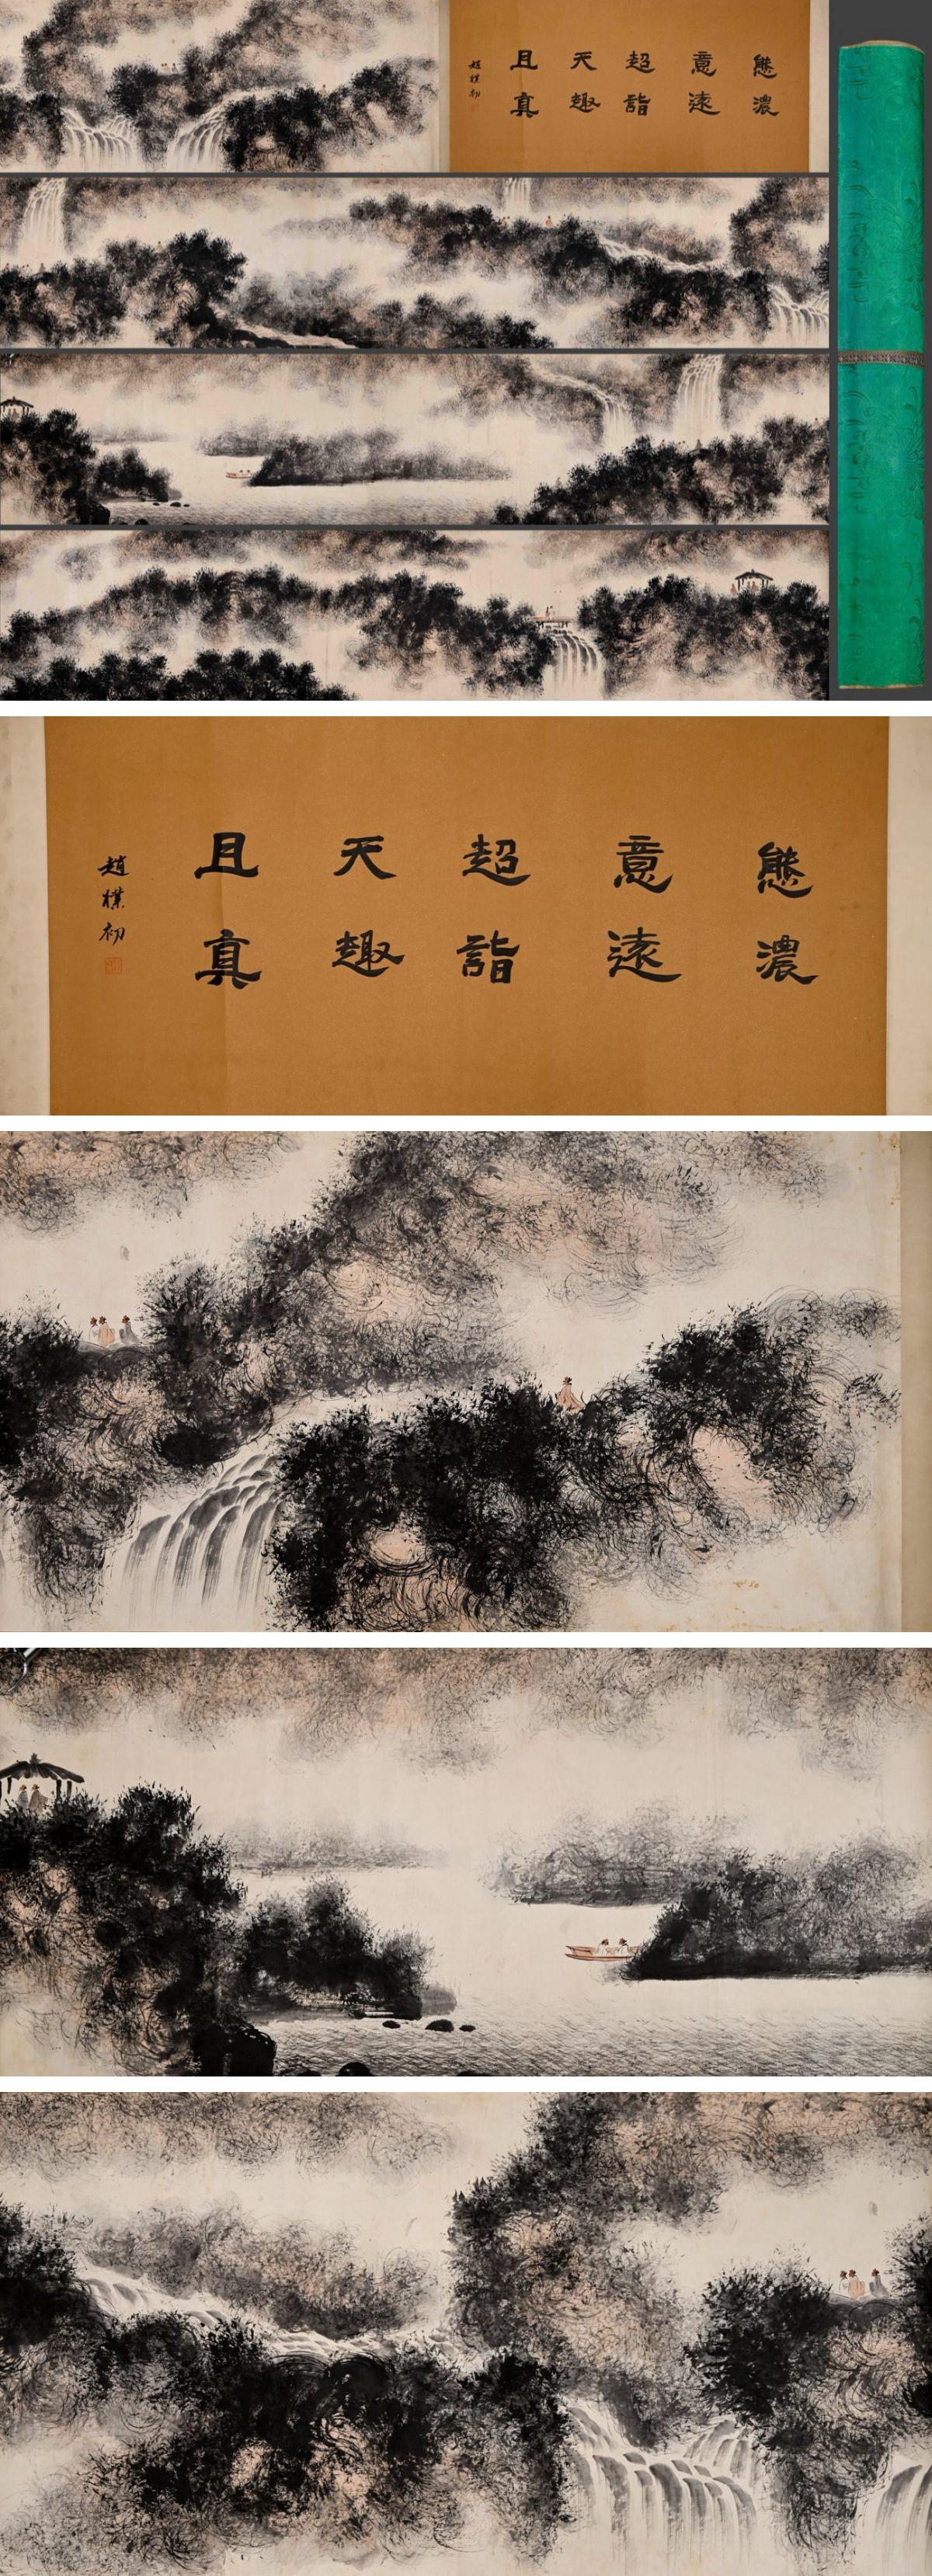 態濃
意遠
超詣
天趣
且真
趙樸初
態濃
意遠
超詣
天趣
且真
趙樸初